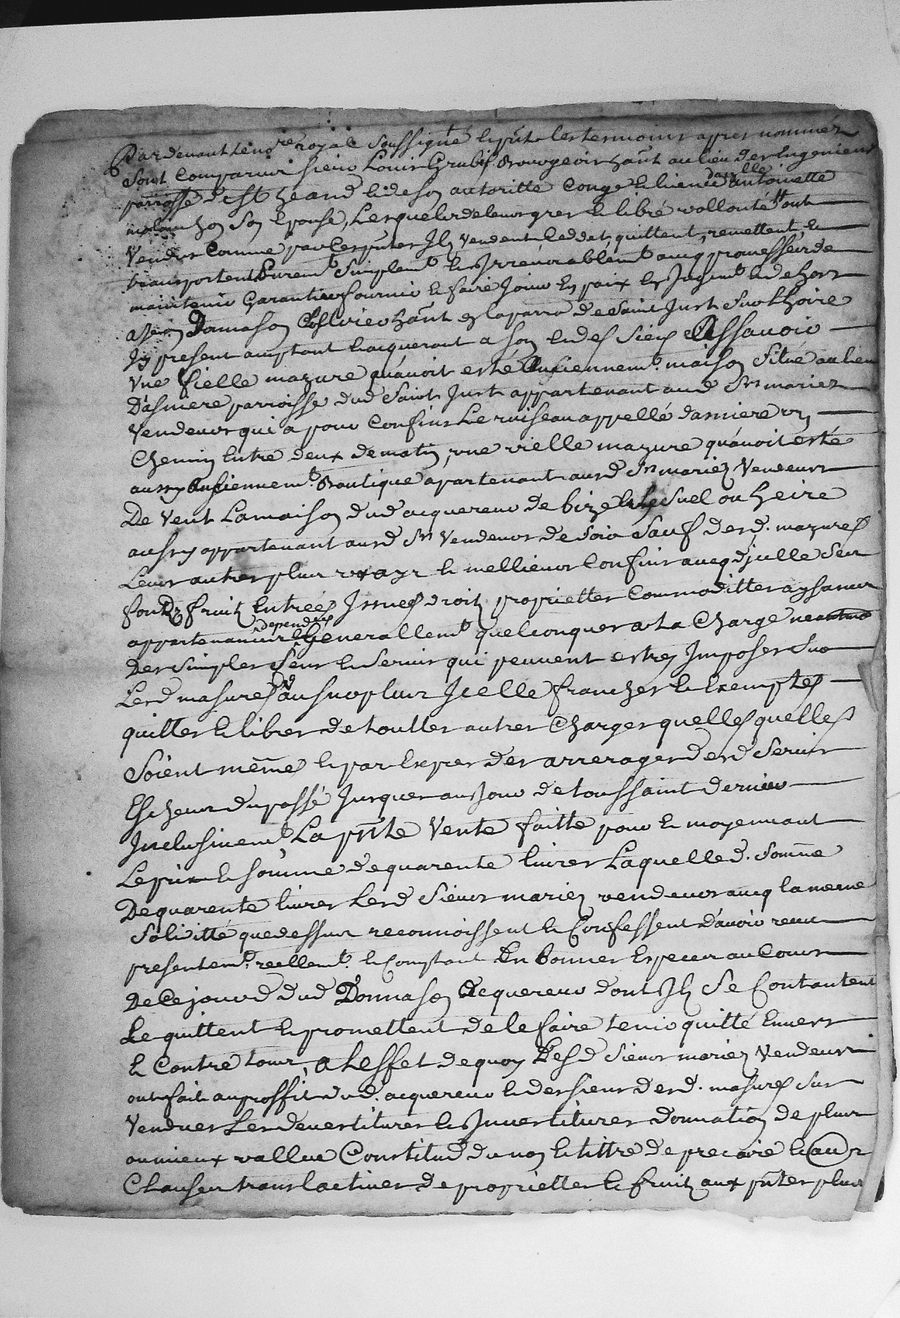 Pardevant le no.re royal soussigné & pnts les tesmoins apres nommez
sont comparus sieur Louis Grubis Bourgeois hant au lieu des
parroisse de St heand & de son autoritté Conge & licence dam.lle antoinette
son Epouse, Lesquels de leurs gres & libre vollonté ont
Vendus Comme par Ces pntes Ils Vendent, Ceddet, quittent, remettent, &
transportent purem.t simplem.t & Irrevocablem.t avecq promesses de
maintenir Garantir fournir & faire Jouir En paix & Jugem.t & dehors
a sieur Damason hant en la parro.e de Saint Just Sur Loire
Icy present acceptant & acquerant a son & des siens Assavoir
Vne vielle mazure quavoit esté Anciennem.t maison situé au lieu
Dasniere parroisse dud Saint Just appartenant aud Srs mariez
Vendeurs qui a pour Confins Le ruisseau appellé dasniere un
Chemin Entre deux de matin, une vielle mazure quavoit esté
aussy Anciennem.t Boutique apartenant ausd Srs mariez Vendeurs
De Vent La maison dud acquereur de bize & suel ou heire
aussy appartenant ausd Srs Vendeurs de soir Sauf desd. mazures
Leurs autres plus vrays & mellieurs Confins avecq d'juelle ses
fondz fruitz Entrées Issues droitz proprietter Commoditter aysances
appartenances dependces & Generallem.t quelconques a La Charge
Des simples Sens & Servis qui peuvent estres Imposes Sur
Lesd masures au surplus Icelle franches & Exemptes
quittes & libres de touttes autres Charges quelles quelles
Soient mesme & par Expres des arrerages desd Servis
Escheus du passé Jusques au Jour de toussaint dernier
Inclusivem.t La pnte Vente faitte pour & moyennant
Le prix & somme de quarente livres Laquelle d. somme
De quarente livres Lesd Sieurs mariez vendeurs avecq la mesme
Soliditté que dessus reconnoissent & Confessent D'avoir receu
presentem.t reellem.t & Comptant En bonnes Especes au Cours
De Ce jourd dud Damason Acquereur dont Ils Se Contantent
Le quittent & promettent de le faire tenir quitte Envers
& Contre tous, a Leffet de quoy Lesd Sieurs mariez Vendeurs
ont fait au proffit dud. acquereur & des siens desd. masures sus
Vendues Les devestitures & Investitures donnation de plus
ou mieux vallue Constitud du nom & tittre de precaire &
Clauses translactives de proprietter & fruitz aux pntes plus